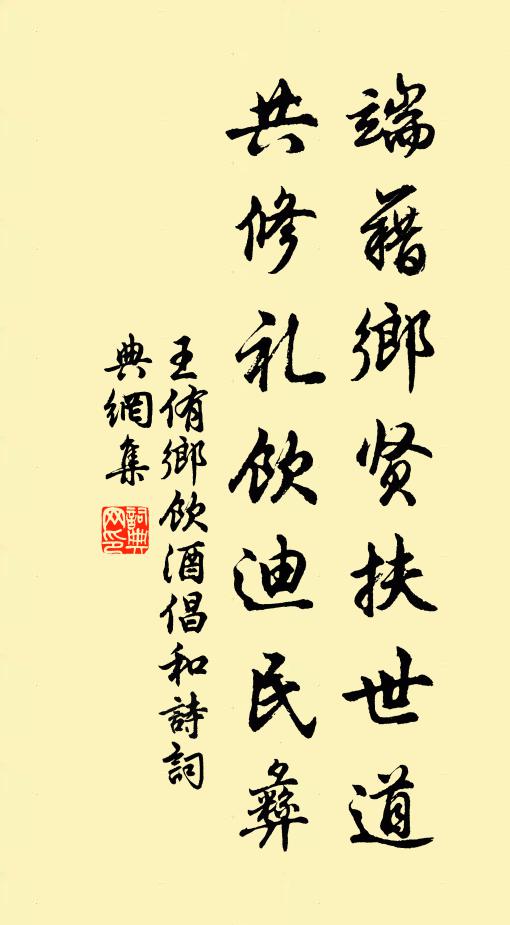 端藉鄉贤扶世道
共修礼飲迪民彝
王侑鄉飲酒倡和詩詞
典網集
詞典
网印